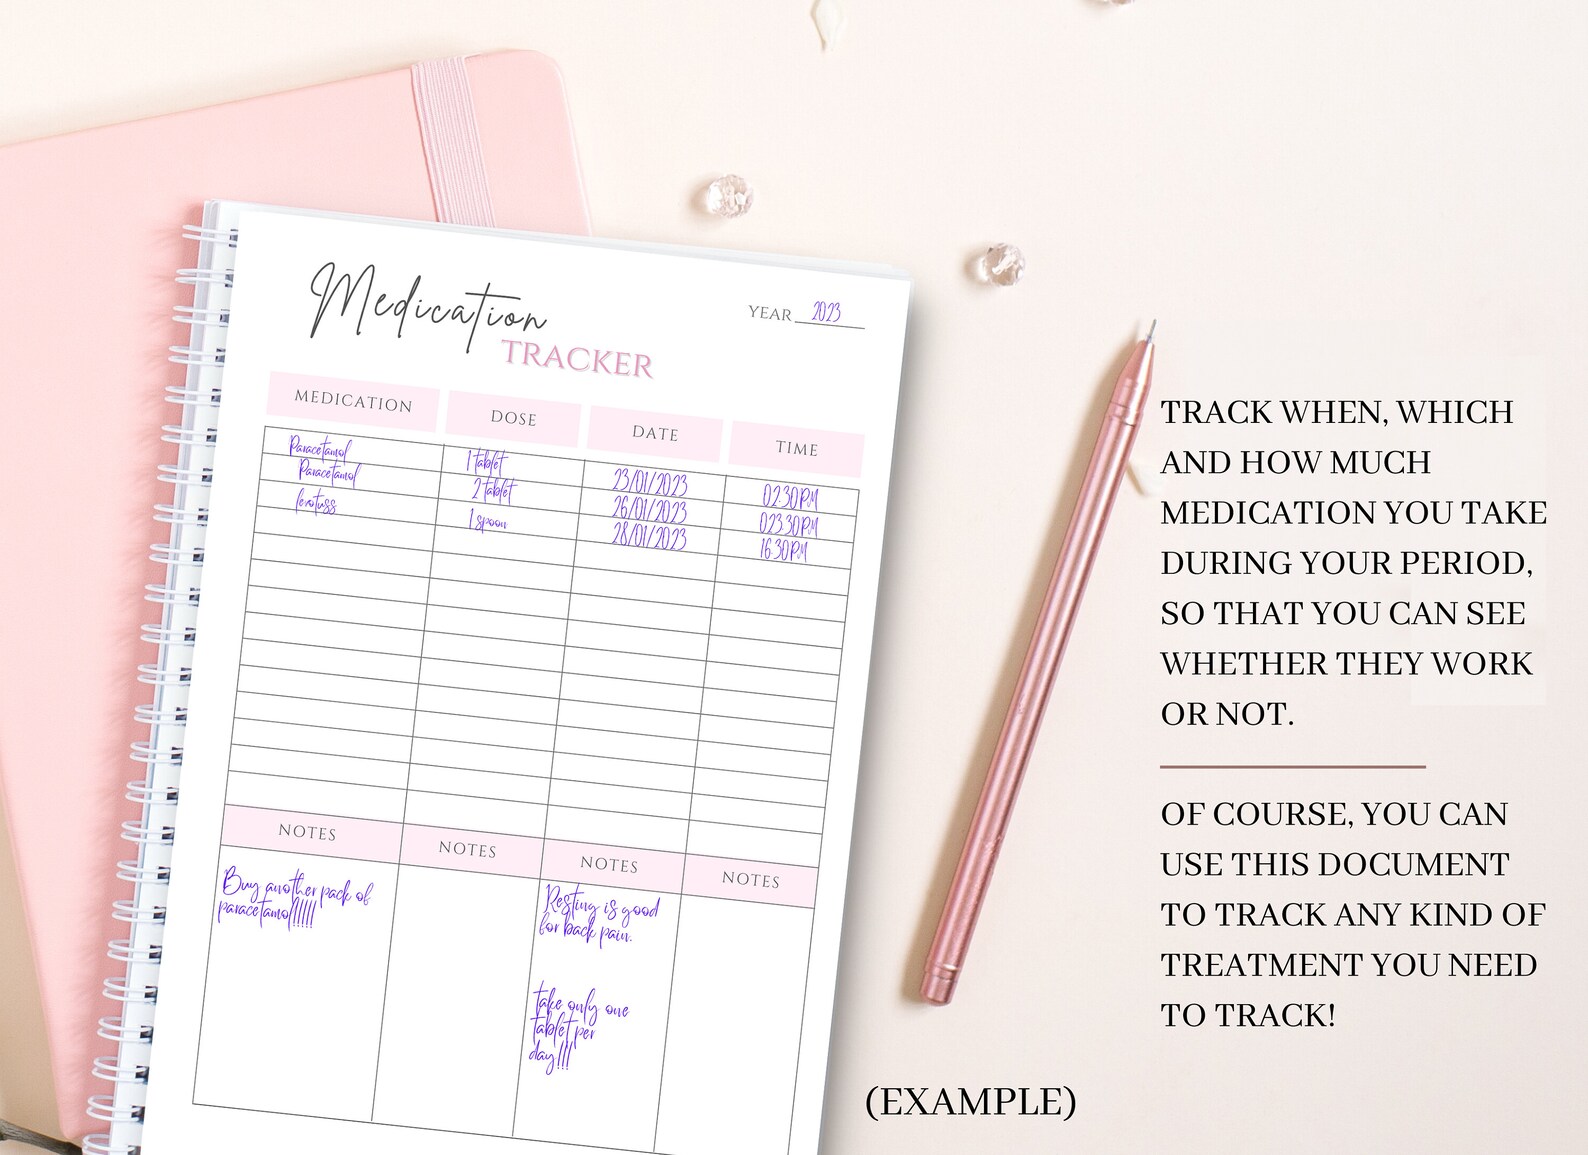 Medication
TRACKER
YEAR 2023
MEDICATION DOSE DATE TIME
Paracetamol 1 tablet 23/01/2023 02.30PM
Paracetamol 2 tablet 26/01/2023 023 30PM
levotuss 1 spoon 28/01/2023 16.30PM
NOTES NOTES NOTES NOTES
Buy another pack of
paracetamol!!!!!
Resting is good
for back pain.
take only one
tablet per
day!!!
TRACK WHEN, WHICH
AND HOW MUCH
MEDICATION YOU TAKE
DURING YOUR PERIOD,
SO THAT YOU CAN SEE
WHETHER THEY WORK
OR NOT.
OF COURSE, YOU CAN
USE THIS DOCUMENT
TO TRACK ANY KIND OF
TREATMENT YOU NEED
TO TRACK!
(EXAMPLE)